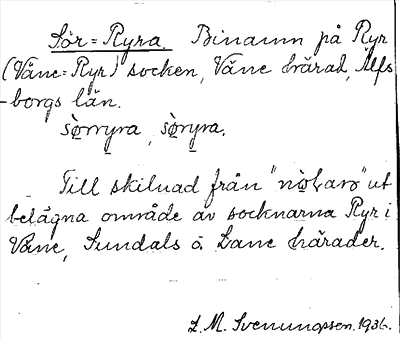 Sör=Ryra. Binamn på Ryr
(Väne=Ryr) socken, Väne härad, Älfs-
borgs län.
sòrryra, sòryra.
Till skilnad från "nòɽaro" ut
belägna område av socknarna Ryr i
Väne, Sundals o. Lane härader.
L. M. Svenungsson. 1936.